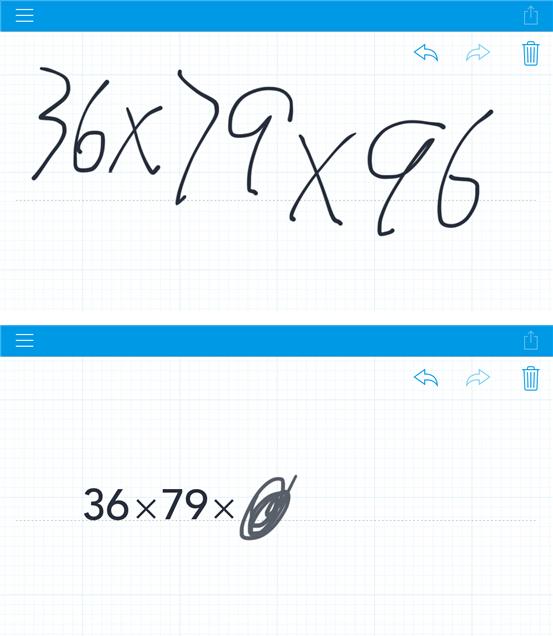 36×79×96
36×79×